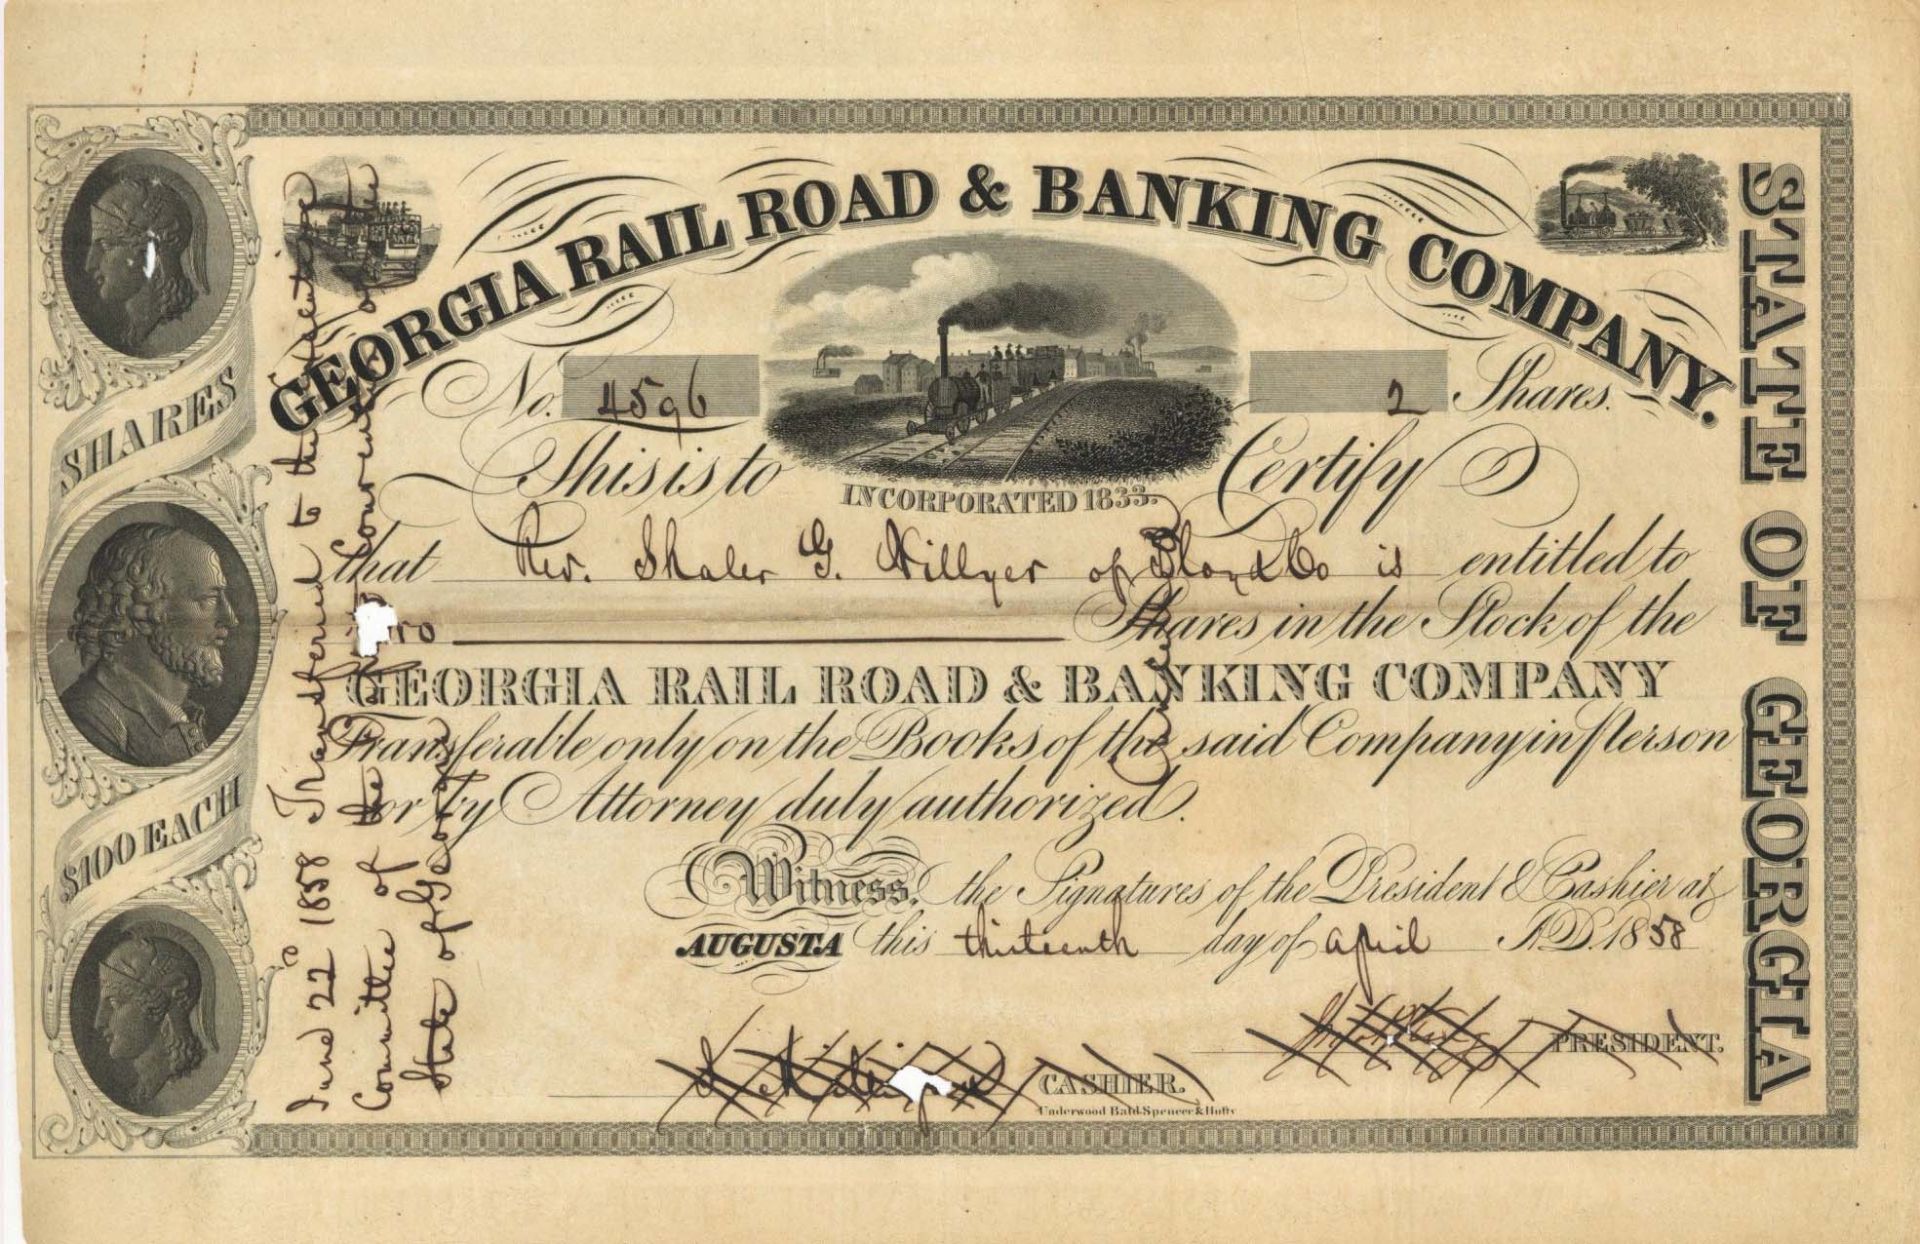 GEORGIA RAIL ROAD & BANKING COMPANY.
No. 4596
2 Shares.
INCORPORATED 1833.
This is to Certify
that Rev. Shaler G. Hillyer of Floyd Co is entitled to
Two Shares in the Stock of the
GEORGIA RAIL ROAD & BANKING COMPANY
Transferable only on the Books of the said Company in person
or by Attorney duly authorized.
Witness, the Signatures of the President & Cashier at
AUGUSTA this thirteenth day of April A.D. 1858
PRESIDENT.
CASHIER.
Underwood Bald Spencer & Hufty
SHARES
$100 EACH
STATE OF GEORGIA
June 22d 1858 Transferred to the Executive
Committee of the Baptist Convention of the
State of Georgia